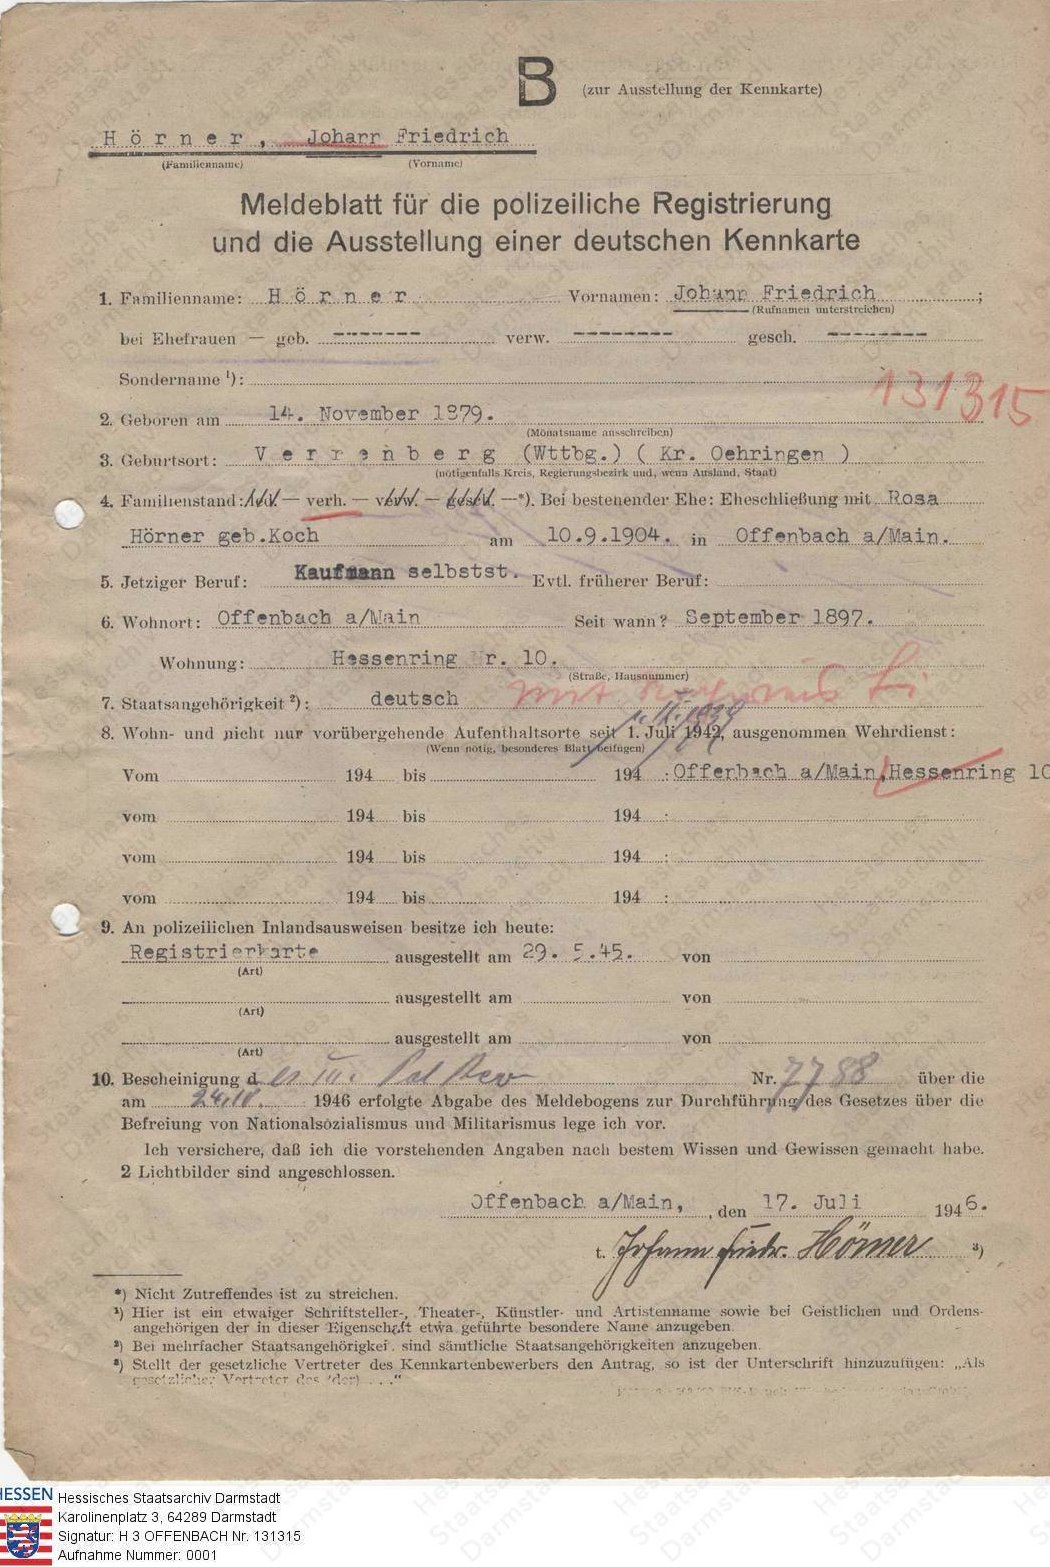 B (zur Ausstellung der Kennkarte)
Hörner, Johann Friedrich
(Familienname) (Vorname)
Meldeblatt für die polizeiliche Registrierung
und die Ausstellung einer deutschen Kennkarte
1. Familienname: Hörner Vornamen: Johann Friedrich ;
(Rufnamen unterstreichen)
bei Ehefrauen — geb. -------- verw. --------- gesch. ---------
Sondername ¹):
131315
2. Geboren am 14. November 1879.
(Monatsname ausschreiben)
3. Geburtsort: Verrenberg (Wttbg.) ( Kr. Oehringen )
(nötigenfalls Kreis, Regierungsbezirk und, wenn Ausland, Staat)
4. Familienstand: led. — verh. — verw. — gesch. —*). Bei bestehender Ehe: Eheschließung mit Rosa
Hörner geb.Koch am 10.9.1904. in Offenbach a/Main.
5. Jetziger Beruf: Kaufmann selbstst. Evtl. früherer Beruf:
6. Wohnort: Offenbach a/Main Seit wann? September 1897.
Wohnung: Hessenring Nr. 10.
(Straße, Hausnummer)
7. Staatsangehörigkeit ²): deutsch mit
8. Wohn- und nicht nur vorübergehende Aufenthaltsorte seit 1. Juli 1942, ausgenommen Wehrdienst:
(Wenn nötig, besonderes Blatt beifügen)
Vom 194 bis 194 : Offenbach a/Main,Hessenring 10
vom 194 bis 194 :
vom 194 bis 194 :
vom 194 bis 194 :
9. An polizeilichen Inlandsausweisen besitze ich heute:
Registrierkarte ausgestellt am 29. 5.45. von
(Art)
ausgestellt am von
(Art)
ausgestellt am von
(Art)
10. Bescheinigung d es III. Pol Rev Nr. 7788 über die
am 1946 erfolgte Abgabe des Meldebogens zur Durchführung des Gesetzes über die
Befreiung von Nationalsozialismus und Militarismus lege ich vor.
Ich versichere, daß ich die vorstehenden Angaben nach bestem Wissen und Gewissen gemacht habe.
2 Lichtbilder sind angeschlossen.
Offenbach a/Main, , den 17. Juli 1946.
t. Johann Friedr. Hörner ³)
*) Nicht Zutreffendes ist zu streichen.
¹) Hier ist ein etwaiger Schriftsteller-, Theater-, Künstler- und Artistenname sowie bei Geistlichen und Ordens-
angehörigen der in dieser Eigenschaft etwa geführte besondere Name anzugeben.
²) Bei mehrfacher Staatsangehörigkei. sind sämtliche Staatsangehörigkeiten anzugeben.
³) Stellt der gesetzliche Vertreter des Kennkartenbewerbers den Antrag, so ist der Unterschrift hinzuzufügen: „Als
gesetzlicher Vertreter des (der) . . ."
HESSEN
Hessisches Staatsarchiv Darmstadt
Karolinenplatz 3, 64289 Darmstadt
Signatur: H 3 OFFENBACH Nr. 131315
Aufnahme Nummer: 0001